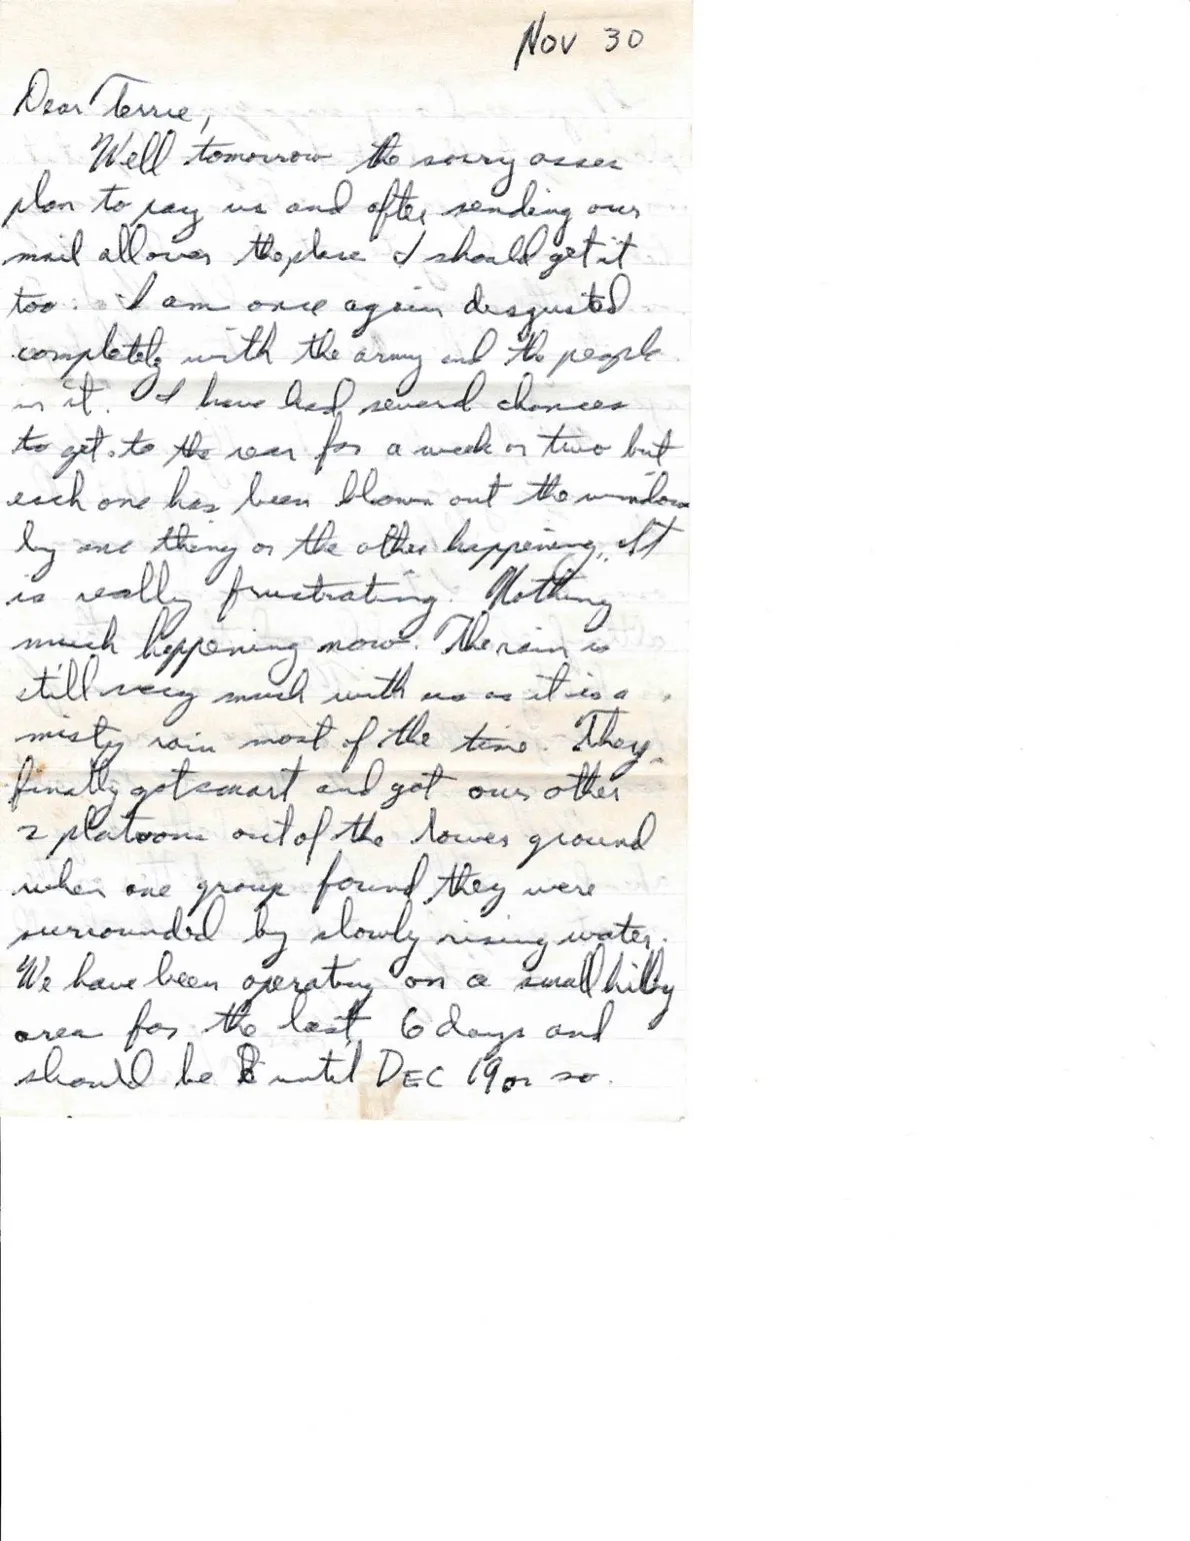 Nov 30
Dear Terrie,
Well tomorrow the sorry asses
plan to pay us and after sending our
mail all over the place I should get it
too. I am once again disgusted
completely with the army and the people
in it. I have had several chances
to get to the rear for a week or two but
each one has been blown out the window
by one thing or the other happening. It
is really frustrating. Nothing
much happening now. The rain is
still very much with us as it is a
misty rain most of the time. They
finally got smart and got our other
2 platoons out of the lower ground
when one group found they were
surrounded by slowly rising water.
We have been operating on a small hilly
area for the last 6 days and
should be until DEC 19 or so.